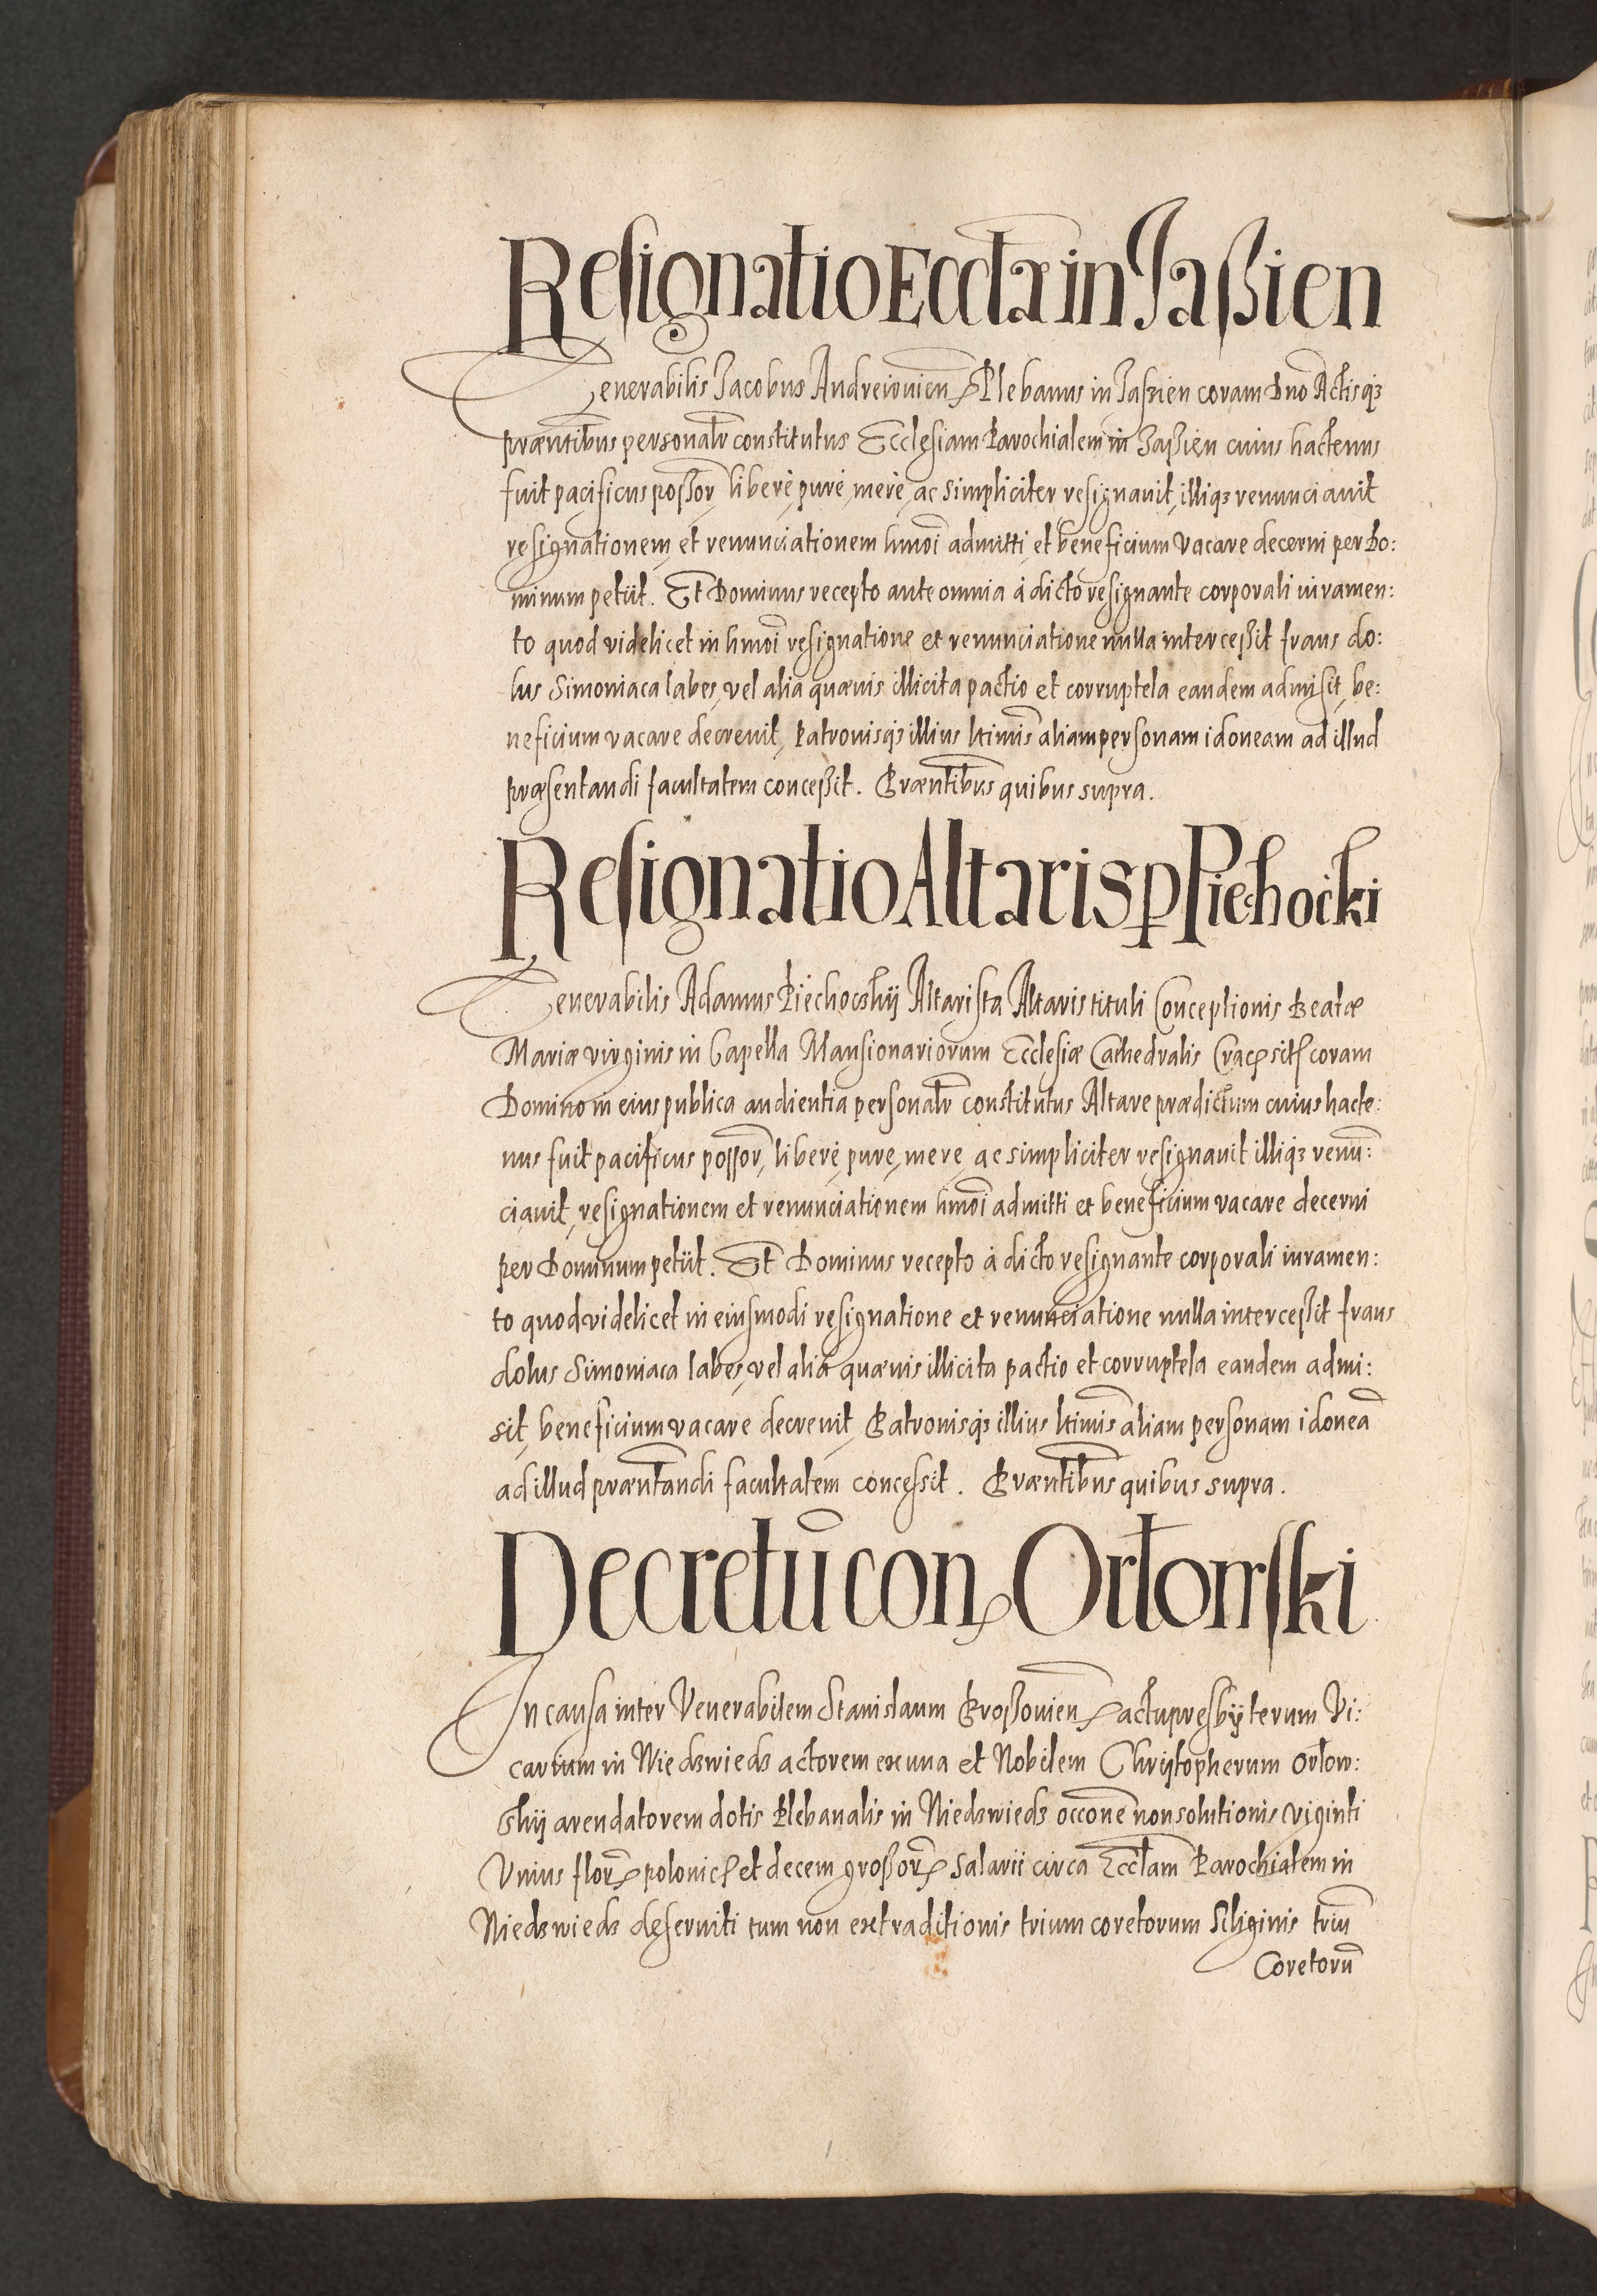 Resignatio Eccłæ in Jaßien
Venerabilis Jacobus Andreiouien Plebanus in Jaßien coram Dno Actisq3
præntibus personalr constitutus Ecclesiam Parochialem in Jaßien cuius hactenus
fuit pacificus poßor, liberè, purè, merè, ac Simpliciter resignauit, illiq3 renunciauit
resignationem, et renunciationem hmoi admitti, et beneficium vacare decerni per Do:
minum petiit. Et Dominus recepto ante omnia à dicto resignante corporali iuramen:
to quod videlicet in hmoi resignatione et renunciatione nulla interceßit fraus do:
lus Simoniaca labes, vel alia quæuis illicita pactio et corruptela eandem admisit, be:
neficium vacare decreuit, Patronisq3 illius ltimis aliam personam idoneam ad illud
præsentandi facultatem conceßit. Præntibus quibus supra.
Resignatio Altaris p Piechoćki
Venerabilis Adamus Piechoczkij Altarista Altaris tituli Conceptionis Beatæ
Mariæ virginis in Capella Mansionariorum Ecclesiæ Cathedralis Crac sit coram
Domino in eius publica audientia personalr constitutus Altare prædictum cuius hacte:
nus fuit pacificus possor, liberè, pure, mere, ac simpliciter resignauit illiq3 renū:
ciauit, resignationem et renunciationem hmoi admitti et beneficium vacare decerni
per Dominum petiit. Et Dominus recepto à dicto resignante corporali iuramen:
to quod videlicet in eiusmodi resignatione et renunciatione nulla interceßit fraus
dolus Simoniaca labes, vel alia quæuis illicita pactio et corruptela eandem admi:
sit, beneficium vacare decreuit, Patronisq3 illius ltimis aliam personam idoneā
ad illud præntandi facultatem concessit. Præntibus quibus supra.
Decretū con Orłowski
In causa inter Venerabilem Stanislaum Proßouien actu presbÿterum Vi:
carium in Niedzwiedz actorem ex una et Nobilem Christopherum Orłow:
skij arendatorem dotis Plebanalis in Niedzwiedz occone non solutionis viginti
Vnius flor polonic et decem großor Salarii circa Eccłam Parochialem in
Niedzwiedz deseruiti tum non extraditionis trium coretorum Siliginis triū
Coretorū